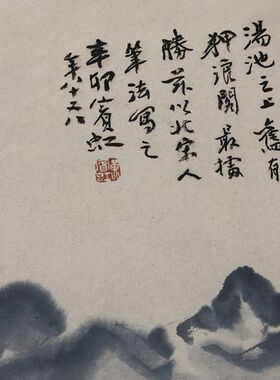 湯池之上舊有
狎浪閣最擅
勝茲以北宋人
筆法寫之
辛卯賓虹
年八十又八